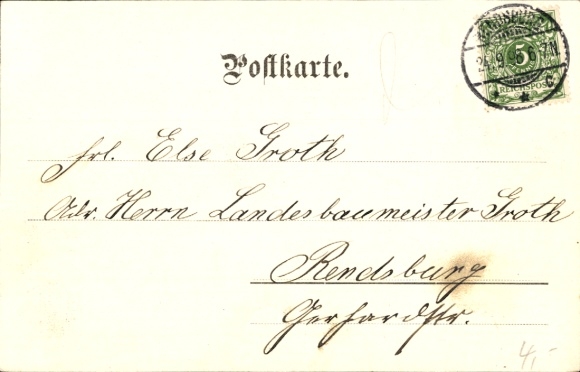 Postkarte.
5
REICHSPOST
Frl. Else Groth
Adr. Herrn Landesbaumeister Groth
Rendsburg
Gerhardstr.
4,-